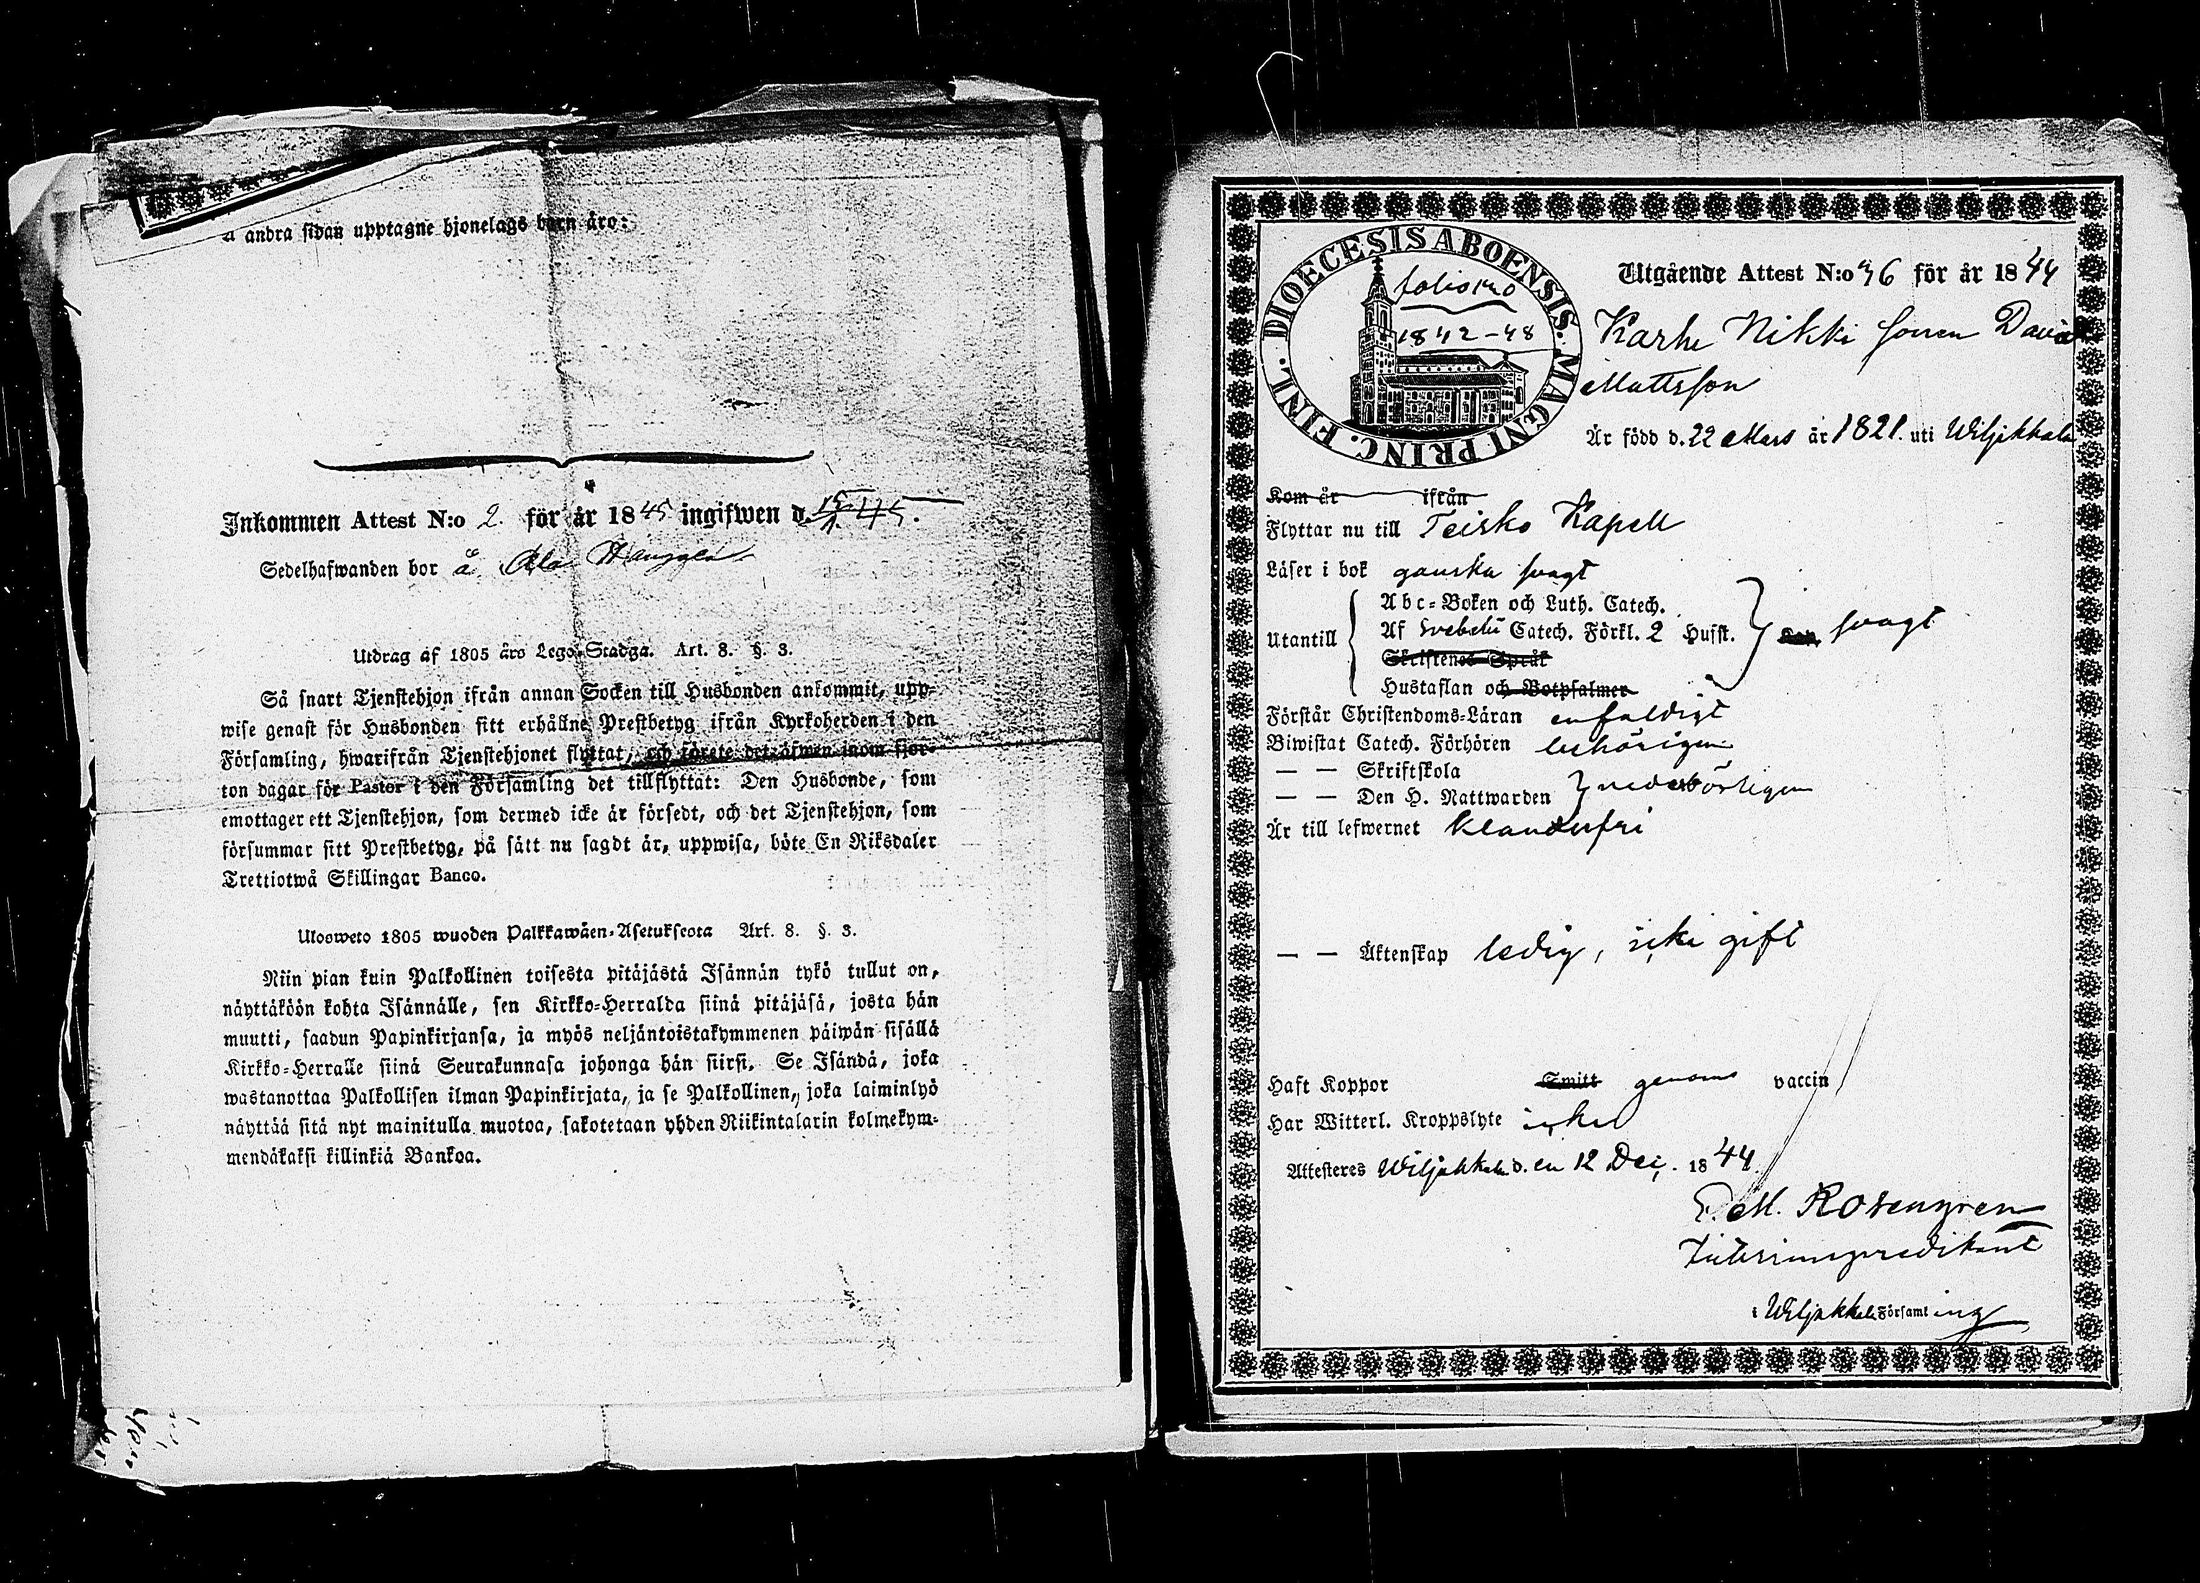 å andra sidan upptagne hjonelags barn äro:
Inkommen Attest N:o 2. för år 1845 ingifwen d. 15/1 45.
Sedelhafwanden bor å Ala
Utdrag af 1805 års Lego-Stadga. Art. 8. §. 3.
Så snart Tjenstehjon ifrån annan Socken till Husbonden ankommit, upp-
wise genast för Husbonden sitt erhållne Prestbetyg ifrån Kyrkoherden i den
Församling, hwarifrån Tjenstehjonet flyttat, och förete det äfwen inom fjor-
ton dagar för Pastor i den Församling det tillflyttat: Den Husbonde, som
emottager ett Tjenstehjon, som dermed icke är försedt, och det Tjenstehjon, som
försummar sitt Prestbetyg, på sätt nu sagdt är, uppwisa, böte En Riksdaler
Trettiotwå Skillingar Banco.
Ulosweto 1805 wuoden Palkkawäen-Asetuksesta Art. 8. §. 3.
Niin pian kuin Palkollinen toisesta pitäjästä Isännän tykö tullut on,
näyttäköön kohta Isännälle, sen Kirkko-Herralda siinä pitäjäsä, josta hän
muutti, saadun Papinkirjansa, ja myös neljäntoistakymmenen päiwän sisällä
Kirkko-Herralle siinä Seurakunnasa johonga hän siirsi. Se Isändä, joka
wastanottaa Palkollisen ilman Papinkirjata, ja se Palkollinen, joka laiminlyö
näyttää sitä nyt mainitulla muotoa, sakotetaan yhden Riikintalarin kolmekym-
mendäkaksi killinkiä Bankoa.
DIOECESIS ABOENSIS. MAGNI PRINC. FINL.
folio 120
1842-48
Utgående Attest N:o 36 för år 1844
Karhe Nikki sonen David
Mattsson
Är född d. 22 Mars år 1821. uti Wiljakkala
Kom år ifrån
Flyttar nu till Teisko Kapell
Läser i bok ganska svagt
Utantill
Abc-Boken och Luth. Catech.
Af Svebelii Catech. Förkl. 2 Husst.
svagt
Skriftenes Språk
Hustaflan och Botpsalmer
Förstår Christendoms-Läran enfaldigt
Biwistat Catech. Förhören behörigen
— — Skriftskola
— — Den H. Nattwarden vederbörligen
Är till lefwernet klanderfri
— — Äktenskap ledig, icke gift
Haft Koppor Smitt genom vaccin
Har Witterl. Kroppslyte icke
Attesteres Wiljakkala d. en 12 Dec. 1844.
E. M. Rosengren
Interimspredikant
i Wiljakkala Församling